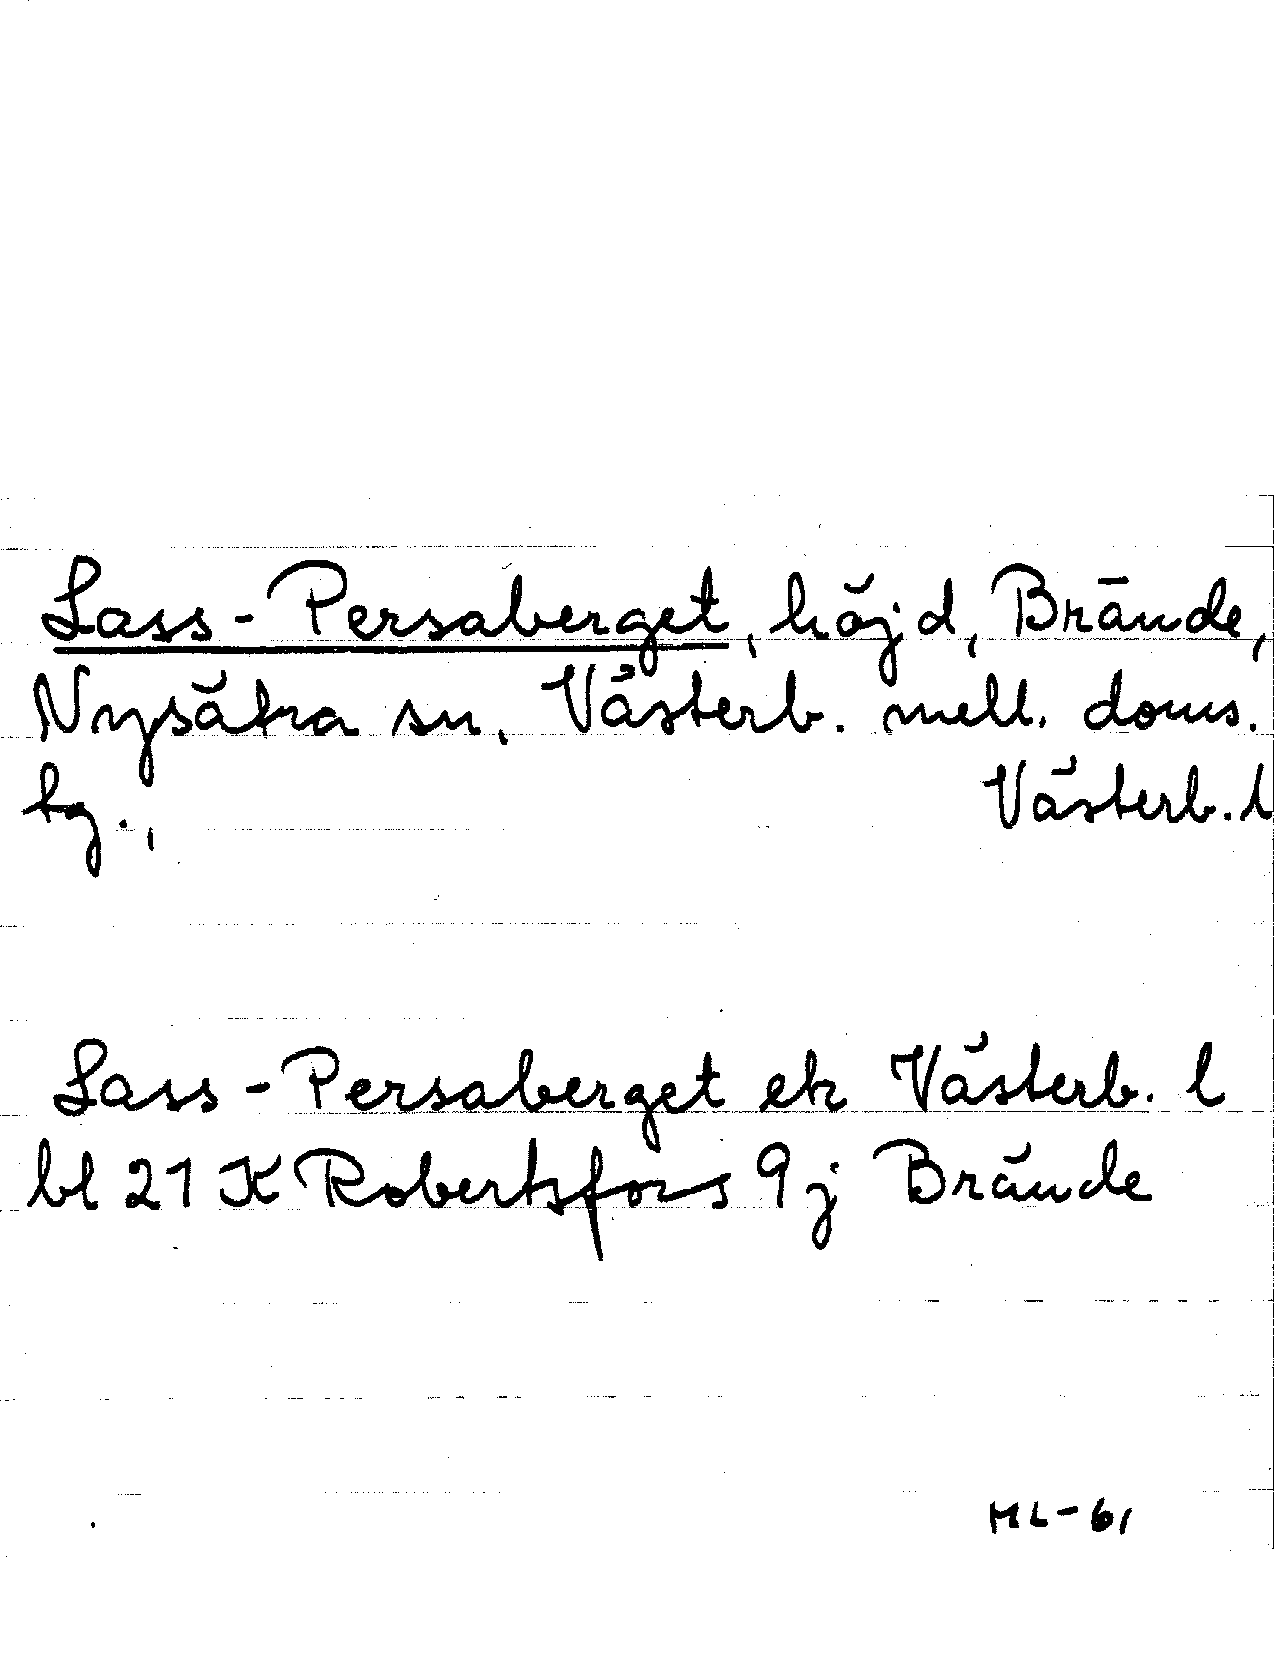 Lass-Persaberget, höjd, Brände,
Nysätra sn, Västerb. mell. doms.
tg., Västerb. l
Lass-Persaberget ek Västerb. l
bl 21 K Robertsfors 9j Brände
ML-61